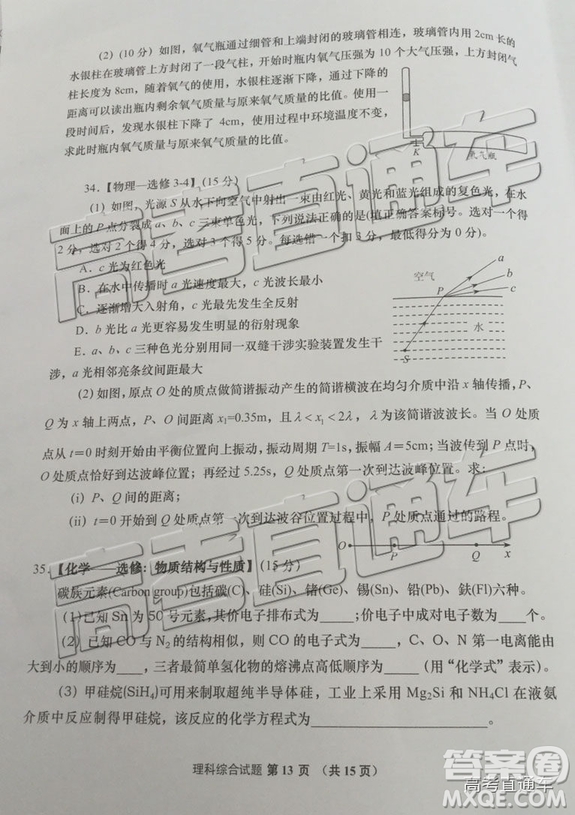 (2) (10分) 如图，氧气瓶通过细管和上端封闭的玻璃管相连，玻璃管内用2cm长的
水银柱在玻璃管上方封闭了一段气柱，开始时瓶内氧气压强为 10 个大气压，上方封闭气
柱长度为8cm，随着氧气的使用，水银柱逐渐下降，通过下降的
距离可以读出瓶内剩余氧气质量与原来氧气质量的比值。使用一
段时间后，发现水银柱下降了 4cm，使用过程中环境温度不变，
求此时瓶内氧气质量与原来氧气质量的比值。
K
氧气瓶
34.【物理—选修3-4】(15 分)
(1) 如图，光源 S 从水下向空气中射出一束由红光、黄光和蓝光组成的复色光，在水
面上的 P 点分裂成 a、b、c 三束单色光，下列说法正确的是(填正确答案标号。选对一个得
2 分，选对 2 个得 4 分，选对 3 个得 5 分。每选错一个扣 3 分，最低得分为 0 分)。
A．c 光为红色光
B．在水中传播时 a 光速度最大，c 光波长最小
C．逐渐增大入射角，c 光最先发生全反射
D．b 光比 a 光更容易发生明显的衍射现象
E．a、b、c 三种色光分别用同一双缝干涉装置形成的干涉条纹，
a 光相邻亮条纹间距最大
空气
P
a
b
c
水
S
(2) 如图，原点 O 处的质点做简谐振动产生的简谐横波在均匀介质中沿 x 轴传播，P、
Q 为 x 轴上两点，P、O 间距离 x₁=0.35m，且 λ<x₁<2λ，λ为该简谐波波长。当 O 处质
点从 t＝0 时刻开始由平衡位置向上振动，振动周期 T=1s，振幅 A＝5cm；当波传到 P 点时，
O 处质点恰好到达波峰位置；再经过 5.25s，Q 质点第一次到达波峰位置。求：
(i) P、Q 间的距离；
(ii) t＝0 开始到 Q 质点第一次到达波谷位置过程中，P 处质点通过的路程。
O
P
Q
x
35.【化学——选修：物质结构与性质】(15 分)
碳族元素(Carbon group)包括碳(C)、硅(Si)、锗(Ge)、锡(Sn)、铅(Pb)、鈇(Fl)六种。
(1)已知 Sn 为 50 号元素，其价电子排布式为____；价电子中成对电子数为____个。
(2) 已知 CO 与 N₂ 的结构相似，则 CO 的电子式为____，C、O、N 第一电离能由
大到小的顺序为____，三者最简单氢化物的熔沸点高低顺序为____(用“化学式”表示)。
(3) 甲硅烷(SiH₄)可用来制取超纯半导体硅，工业上采用 Mg₂Si 和 NH₄Cl 在液氨
介质中反应制得甲硅烷，该反应的化学方程式为____________。
理科综合试题 第 13 页 （共 15 页）
高考直通车
高考直通车
高考直通车
答案圈
MXQE.COM